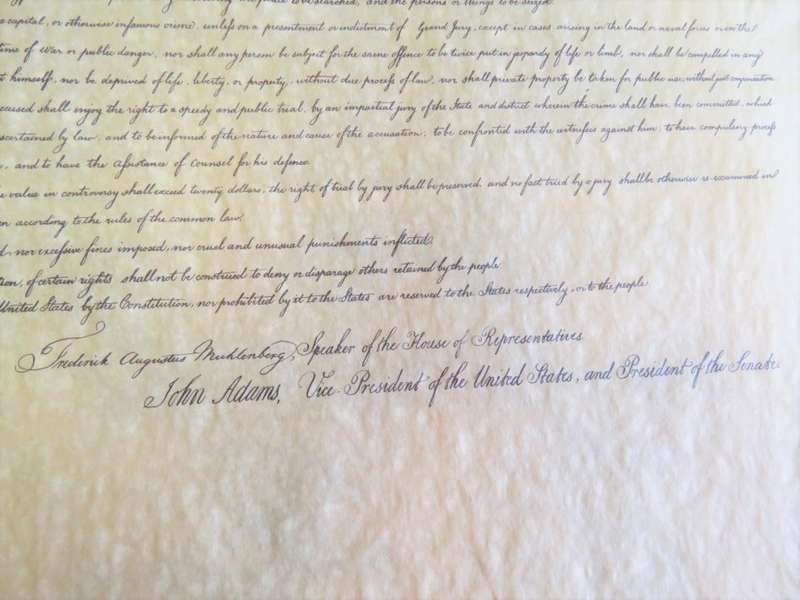 the place to be searched, and the persons or things to be seized.
a capital, or otherwise infamous crime, unleſs on a presentment or indictment of Grand Jury, except in cases arising in the land or naval forces or in the
time of War or public danger, nor shall any person be subject for the same offence to be twice put in jeopardy of life or limb, nor shall be compelled in any
himself, nor be deprived of life, liberty, or property, without due proceſs of law, nor shall private property be taken for public use, without just compensation
accused shall enjoy the right to a speedy and public trial, by an impartial jury of the State and district wherein the crime shall have been committed, which
ascertained by law, and to be informed of the nature and cause of the accusation, to be confronted with the witneſses against him, to have compulsory proceſs
and to have the Aſsistance of Counsel for his defence.
value in controversy shall exceed twenty dollars, the right of trial by jury shall be preserved, and no fact tried by a jury shall be otherwise re-examined in
according to the rules of the common law.
nor exceſsive fines imposed, nor cruel and unusual punishments inflicted.
of certain rights shall not be construed to deny or disparage others retained by the people.
United States by the Constitution, nor prohibited by it to the States are reserved to the States respectively, or to the people.
Frederick Augustus Muhlenberg, Speaker of the House of Representatives
John Adams, Vice-President of the United States, and President of the Senate